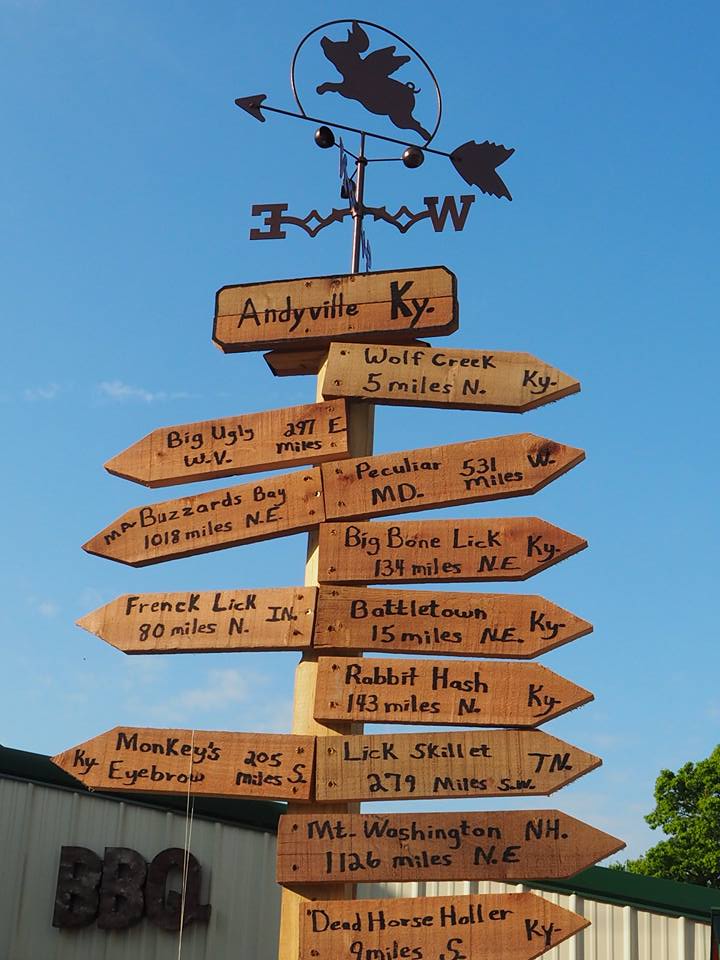 E W
Andyville Ky.
Wolf Creek
5 miles N. Ky-
Big Ugly 297 E.
W.V. miles
Peculiar 531 W.
MD. miles
MA Buzzards Bay
1018 miles N.E.
Big Bone Lick Ky-
134 miles N.E
French Lick IN.
80 miles N.
Battletown Ky-
15 miles N.E.
Rabbit Hash Ky-
143 miles N.
Monkey's 205
Ky Eyebrow miles S.
Lick Skillet TN.
279 Miles S.W.
Mt. Washington NH.
1126 miles N.E
Dead Horse Holler Ky-
9miles S.
BBQ